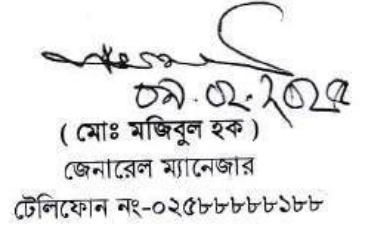 ( মোঃ মজিবুল হক )
জেনারেল ম্যানেজার
টেলিফোন নং-০২৫৮৮৮৮৮১৮৮